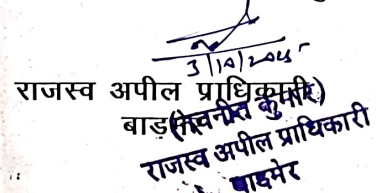 3/10/2025
राजस्व अपील प्राधिकारी
बाड़मेर
(नवनीत कुमार)
राजस्व अपील प्राधिकारी
बाड़मेर